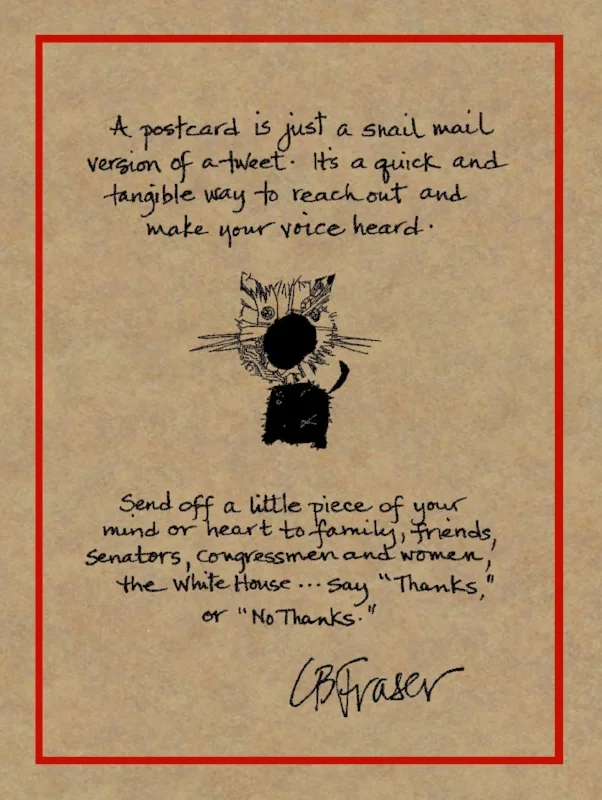 A postcard is just a snail mail
version of a tweet. It's a quick and
tangible way to reach out and
make your voice heard.
Send off a little piece of your
mind or heart to family, friends,
senators, congressmen and women,
the White House ... say "Thanks,"
or "No Thanks."
CBFraser